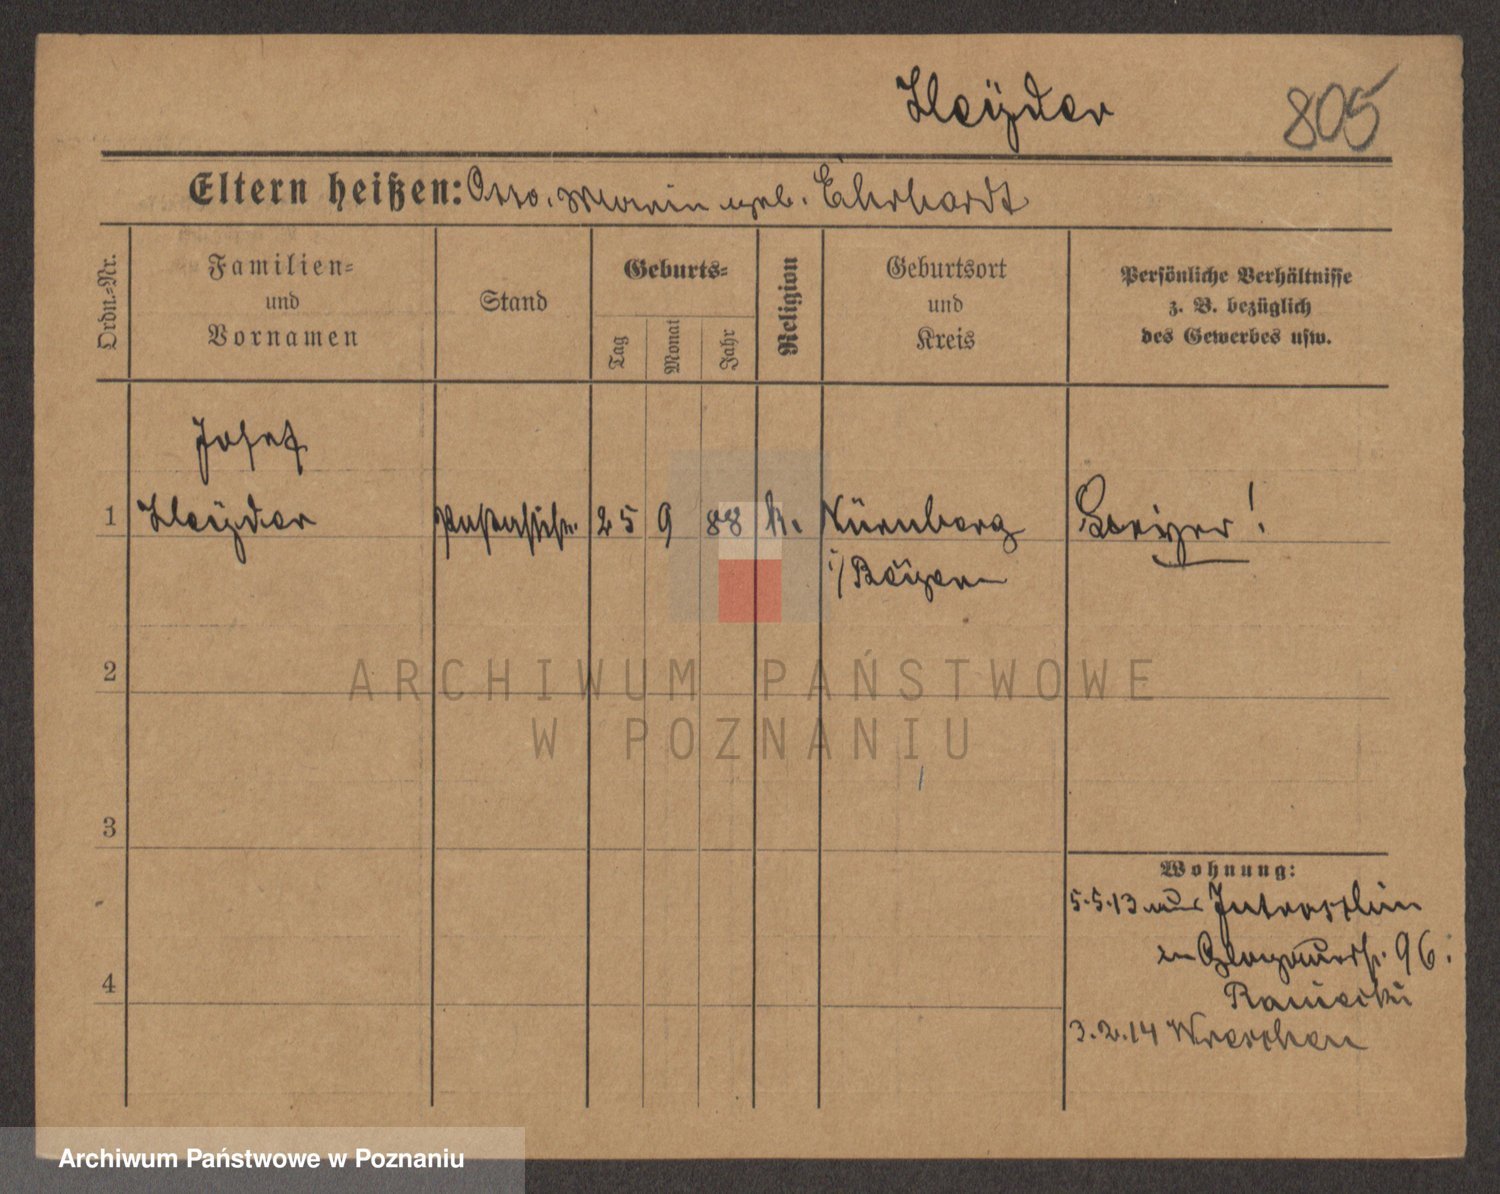 Heÿder 805
Eltern heißen: Otto. Marie geb. Ehrhardt
Ordn.-Nr.
Familien-
und
Vornamen
Stand
Geburts-
Tag
Monat
Jahr
Religion
Geburtsort
und
Kreis
Persönliche Verhältnisse
z. B. bezüglich
des Gewerbes usw.
Josef
1 Heÿder 25 9 88 k. Nürnberg
i/ Bayern
2
3
4
Wohnung:
5.5.13 aus
Glogauerstr. 96.
3.2.14 Wreschen
ARCHIWUM PAŃSTWOWE
W POZNANIU
Archiwum Państwowe w Poznaniu